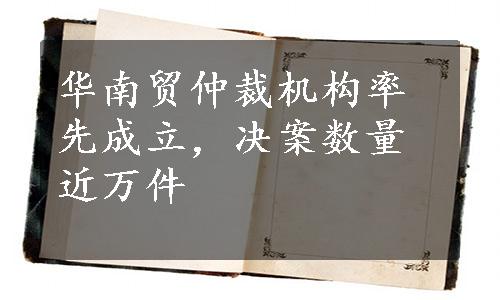 华南贸仲裁机构率
先成立，决案数量
近万件